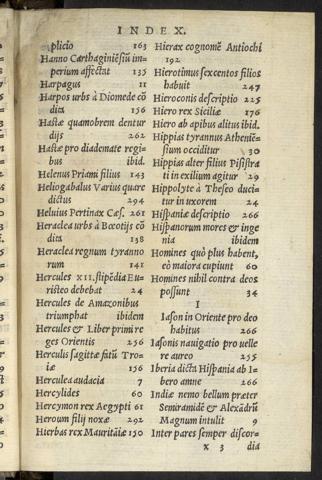 INDEX.
plicio 163
Hanno Carthaginiẽsiũ im-
perium affectat 135
Harpagus 11
Harpos urbs à Diomede cõ
dita 156
Hastæ quamobrem dentur
dijs 262
Hastæ pro diademate regi-
bus ibid.
Helenus Priami filius 143
Heliogabalus Varius quare
dictus 294
Heluius Pertinax Cæs. 261
Heraclea urbs à Bœotijs cõ
dita 138
Heraclea regnum tyranno
rum 141
Hercules XII. stipẽdia Eu-
risteo debebat 24
Hercules de Amazonibus
triumphat ibidem
Hercules & Liber primi re
ges Orientis 256
Herculis sagittæ fatũ Tro-
iæ 156
Herculea audacia 7
Hercylides 60
Hercymon rex Aegypti 61
Heroum filij noxæ 292
Hierbas rex Mauritãiæ 150
Hierax cognomẽ Antiochi
192
Hierotimus sexcentos filios
habuit 247
Hieroconis descriptio 225
Hiero rex Siciliæ 176
Hiero ab apibus alitus ibid.
Hippias tyrannus Atheniẽ-
sium occiditur 30
Hippias alter filius Pisistra
ti in exilium agitur 29
Hippolyte à Theseo duci-
tur in uxorem 24
Hispaniæ descriptio 266
Hispanorum mores & inge
nia ibidem
Homines quò plus habent,
eò maiora cupiunt 60
Homines nihil contra deos
possunt 34
I
Iason in Oriente pro deo
habitus 266
Iasonis nauigatio pro uelle
re aureo 255
Iberia dicta Hispania ab I-
bero amne 266
Indiæ nemo bellum præter
Semiramidẽ & Alexãdrũ
Magnum intulit 9
Inter pares semper discor-
x 3 dia